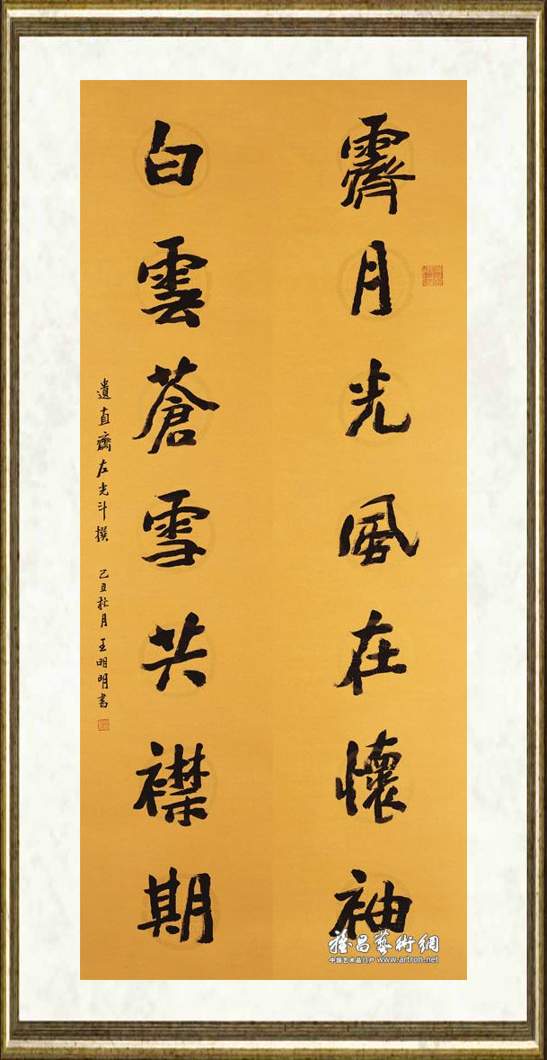 霽月光風在懷袖
白雲蒼雪共襟期
遺直齋左光斗撰 乙丑秋月 王明明書
雅昌藝術網
中国艺术品门户 www.artron.net